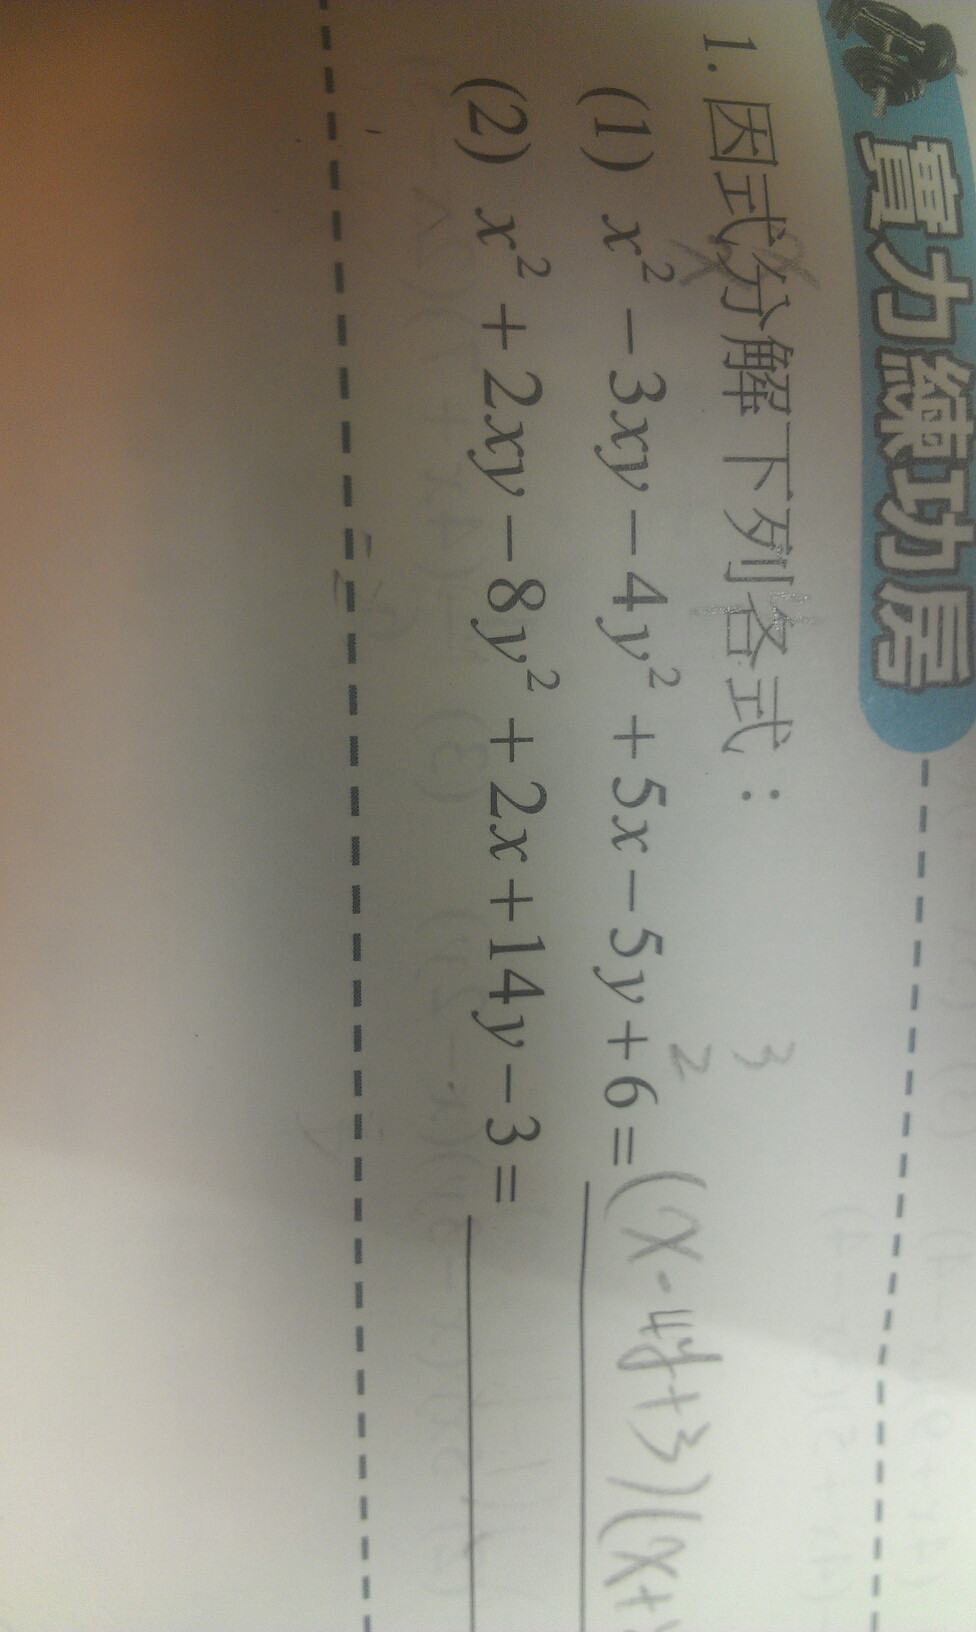 實力練功房
1. 因式分解下列各式：
3
2
(1) x² − 3xy − 4y² + 5x − 5y + 6 = (x-4y+3)(x+
(2) x² + 2xy − 8y² + 2x + 14y − 3 =